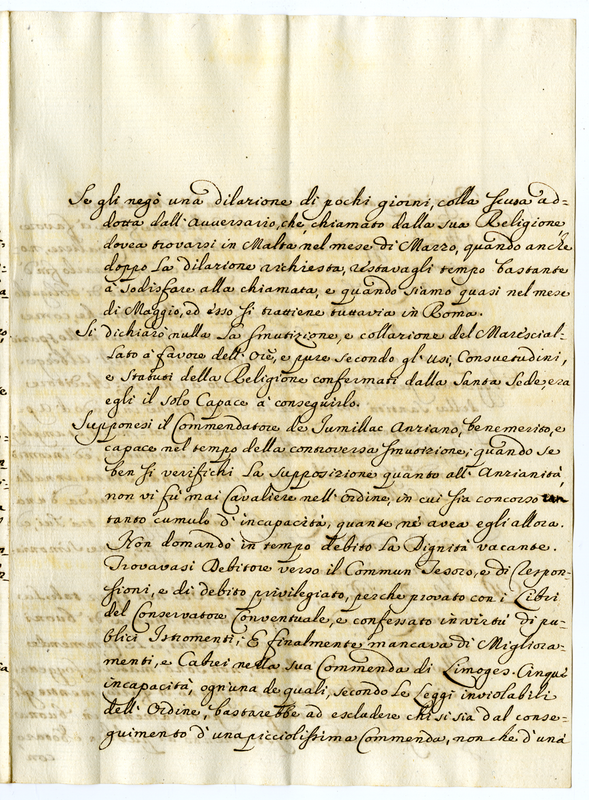 Se gli negò una dilazione di pochi giorni, colla scusa ad=
dotta dall'Avversario, che, chiamato dalla sua Religione,
dovea trovarsi in Malta nel mese di Marzo, quando anche
doppo la dilazione richiesta, restavagli tempo bastante
à sodisfare alla chiamata, e quando siamo quasi nel mese
di Maggio, ed esso si trattiene tuttavia in Roma.
Si dichiarò nulla la smutizione, e collazione del Marescial=
lato à favore dell'Orē, e pure secondo gl'usi, Consuetudini,
e Statuti della Religione confermati dalla Santa Sede, era
egli il solo Capace à conseguirlo.
Supponesi il Commendatore de Jumillac Anziano, benemerito, e
capace nel tempo della controversa smutizione; quando se
ben si verifichi la supposizione quanto all'Anzianità,
non vi fù mai Cavaliere nell'Ordine, in cui sia concorso
tanto cumulo d'incapacità, quante nè avea egli allora.
Non domandò in tempo debito la Dignità vacante.
Trovavasi Debitore verso il Commun Tesoro, e di Respon=
sioni, e di debito privilegiato, perche provato con i Libri
del Conservatore Conventuale, e confessato in virtù di pu=
blici Istromenti; E finalmente mancava di Migliora=
menti, e Cabrei nella sua Commenda di Limoges. Cinque
incapacità, ogn'una de quali, secondo le Leggi inviolabili
dell'Ordine, bastarebbe ad escludere chi si sia dal conse=
guimento d'una picciolissima Commenda, non che d'una